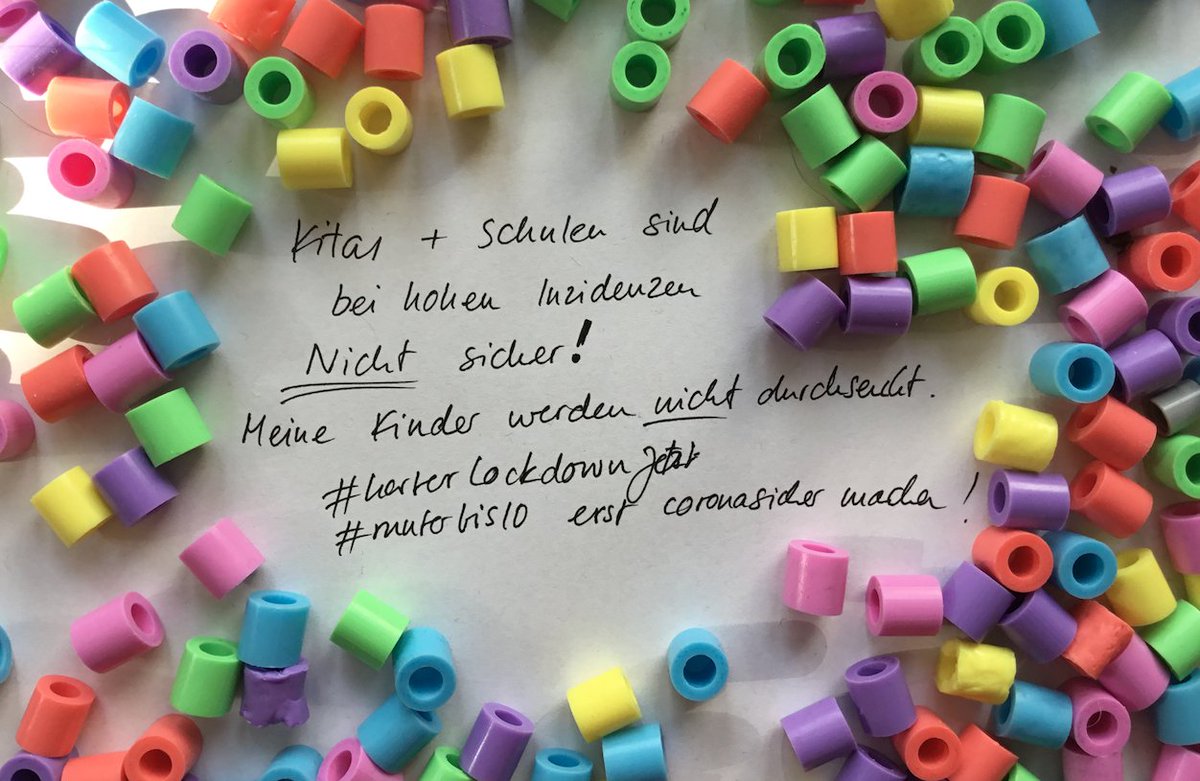 Kitas + Schulen sind
bei hohen Inzidenzen
Nicht sicher!
Meine Kinder werden nicht durchseucht.
#harterLockdownJetzt
#runterbis10 erst coronasicher machen!